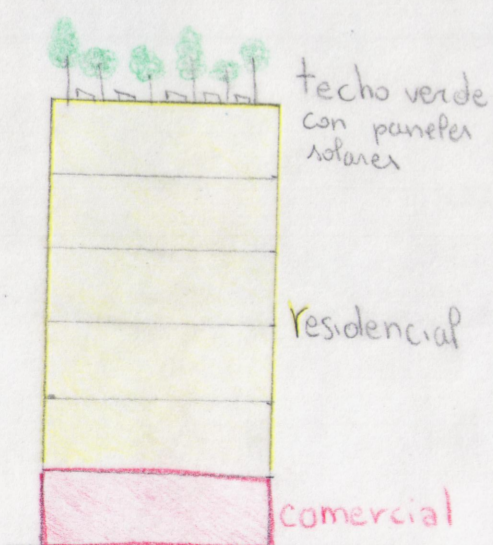 techo verde
con paneles
solares
residencial
comercial